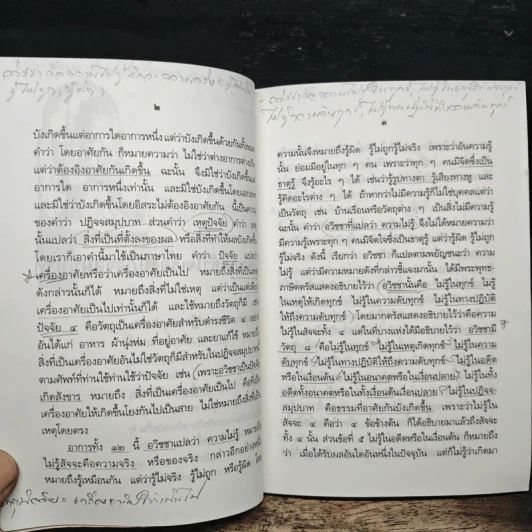 ๒
บังเกิดขึ้นแต่อาการใดอาการหนึ่ง แต่ว่าบังเกิดขึ้นด้วยกันทั้งหมด
คำว่า โดยอาศัยกัน ก็หมายความว่า ไม่ใช่ว่าต่างอาการต่างเกิด
แต่ว่าต้องอิงอาศัยกันเกิดขึ้น ฉะนั้น จึงมิใช่บังเกิดขึ้นแต่
อาการใด อาการหนึ่งเท่านั้น และมิใช่บังเกิดขึ้นโดยเอกเทศ
และมิใช่ว่าบังเกิดขึ้นโดยอิสระไม่ต้องอิงอาศัยกัน นี้เป็นความ
ของคำว่า ปฏิจจสมุปบาท ส่วนคำว่า เหตุปัจจัย คำว่า เหตุ
นั้นแปลว่า สิ่งที่เป็นที่ตั้งลงของผล หรือสิ่งที่ทำให้ผลบังเกิดขึ้น
โดยเราก็เอาคำนี้มาใช้เป็นภาษาไทย คำว่า ปัจจัย แปลว่า
เครื่องอาศัยหรือว่าเครื่องอาศัยเป็นไป หมายถึงสิ่งที่เป็นเหตุ
ดังกล่าวนั้นก็ได้ หมายถึงสิ่งที่ไม่ใช่เหตุ แต่ว่าเป็นแต่เพียง
เครื่องอาศัยเป็นไปเท่านั้นก็ได้ และใช้หมายถึงวัตถุก็มี เช่น
ปัจจัย ๔ คือวัตถุเป็นเครื่องอาศัยสำหรับดำรงชีวิต ๔ อย่าง
อันได้แก่ อาหาร ผ้านุ่งห่ม ที่อยู่อาศัย และยาแก้ไข้ หมายถึง
สิ่งที่เป็นเครื่องอาศัยอันไม่ใช่วัตถุก็มีสำหรับในปฏิจจสมุปบาท
ตามศัพท์ที่ท่านใช้ท่านใช้ว่าปัจจัย เช่น เพราะอวิชชาเป็นปัจจัย
เกิดสังขาร หมายถึง สิ่งที่เป็นเครื่องอาศัยเป็นไป คือที่เป็น
เครื่องอาศัยให้เกิดขึ้นโยงกันไปเป็นสาย ไม่ใช่หมายถึงสิ่งที่
เหตุโดยตรง
อาการทั้ง ๑๒ นี้ อวิชชาแปลว่า ความไม่รู้ หมายถึง
ไม่รู้สัจจะคือความจริง หรือของจริง กล่าวอีกอย่างหนึ่ง
หมายถึงรู้เหมือนกัน แต่ว่ารู้ไม่จริง รู้ไม่ถูก หรือรู้ผิด โดย
๓
ความนั้นจึงหมายถึงรู้ผิด รู้ไม่ถูกรู้ไม่จริง เพราะว่าอันความรู้
นั้น ย่อมมีอยู่ในทุก ๆ คน เพราะว่าทุก ๆ คนมีจิตซึ่งเป็น
ธาตุรู้ จึงรู้อะไร ๆ ได้ เช่นว่ารู้รูปทางตา รู้เสียงทางหู และ
รู้คิดอะไรต่าง ๆ ได้ ถ้าหากว่าไม่มีความรู้ก็ไม่ใช่บุคคลแต่ว่า
เป็นวัตถุ เช่น บ้านเรือนหรือวัตถุต่าง ๆ เป็นสิ่งไม่มีความรู้
ฉะนั้น คำว่า อวิชชาที่แปลว่า ความไม่รู้ จึงไม่ได้หมายความว่า
มีความรู้เพราะทุก ๆ คนมีจิตใจซึ่งเป็นธาตุรู้ แต่ว่ารู้ผิด รู้ไม่ถูก
รู้ไม่จริง ดังนี้ เรียกว่า อวิชชา ก็แปลตามพยัญชนะว่า ความ
ไม่รู้ แต่ว่ามีความหมายดังที่กล่าวชี้แจงมานั้น ได้มีพระพุทธ-
ภาษิตตรัสแสดงอธิบายไว้ว่า อวิชชานั้นคือ ไม่รู้ในทุกข์ ไม่รู้
ในเหตุให้เกิดทุกข์ ไม่รู้ในความดับทุกข์ ไม่รู้ในทางปฏิบัติ
ให้ถึงความดับทุกข์ โดยมากตรัสแสดงอธิบายไว้ว่าคือความ
ไม่รู้ในสัจจะทั้ง ๔ แต่ในที่บางแห่งได้มีอธิบายไว้ว่า อวิชชามี
วัตถุ ๘ คือไม่รู้ในทุกข์ ไม่รู้ในเหตุเกิดทุกข์ ไม่รู้ในความ
ดับทุกข์ ไม่รู้ในทางปฏิบัติให้ถึงความดับทุกข์ ไม่รู้ในอดีต
หรือในเงื่อนต้น ไม่รู้ในอนาคตหรือในเงื่อนปลาย ไม่รู้ในทั้ง
อดีตทั้งอนาคตหรือในทั้งเงื่อนต้นเงื่อนปลาย ไม่รู้ในปฏิจจ-
สมุปบาท คือธรรมที่อาศัยกันบังเกิดขึ้น เพราะว่าไม่รู้ใน
สัจจะ ๔ คือว่า ๔ ข้อข้างต้น ก็ได้อธิบายมาแล้วถึงสัจจะ
ทั้ง ๔ นั้น ส่วนข้อที่ ๕ ไม่รู้ในอดีตหรือในเงื่อนต้น ก็หมายถึง
ว่า เมื่อได้รับผลอันใดอันหนึ่งในปัจจุบัน แต่ก็ไม่รู้ว่าเกิดมา